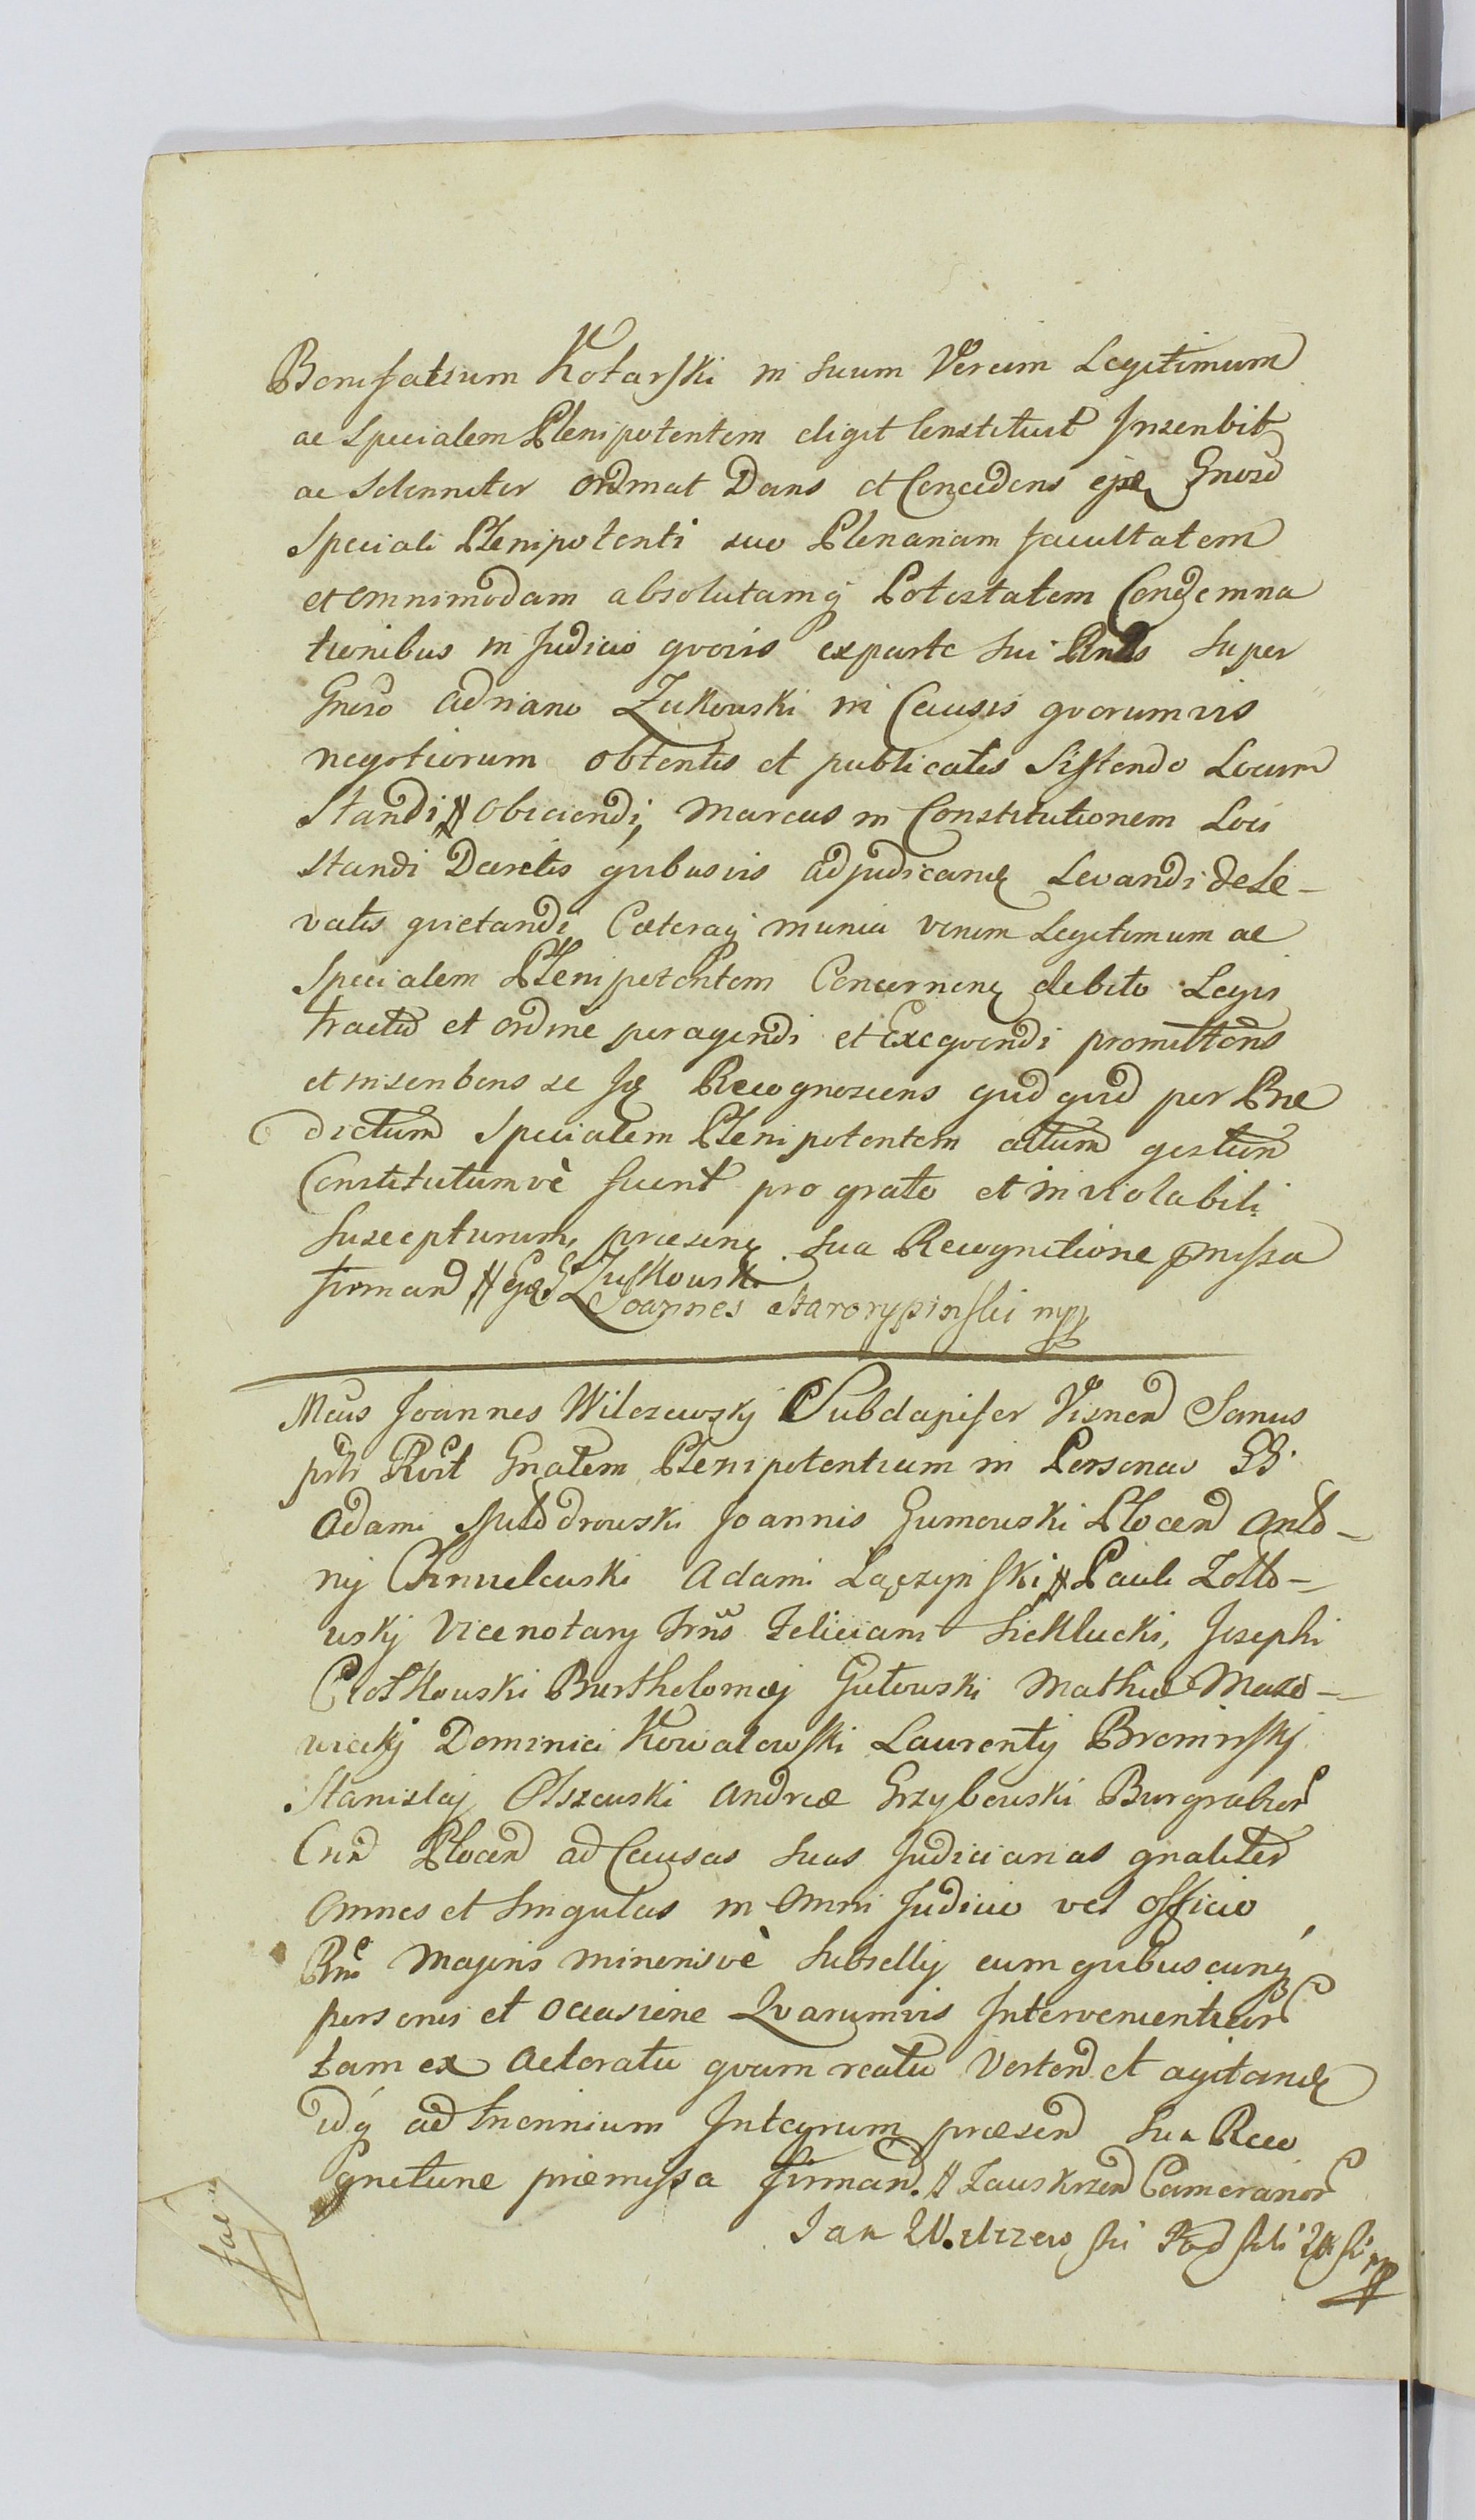 Bonifatium Kotarski in suum Verum Legitimum
ac Specialem Plenipotentem eligit Constituit Inscribit
ac Solenniter ordinat Dans et Concedens ejsē Gnoso
Speciali Plenipotenti suo Plenariam facultatem
et omnimodam absolutamq Potestatem Condemna
tionibus in Judicio qvovis ex parte sui super
Gnoso Adriano Zukowski in Causis qvorumvis
negotiorum obtentis et publicatis Sistendo Locum
standi # obiciendi, Marcas in Constitutionem Loci
standi Decretis qvibusvis adjudicand Levandi de Le-
vatis qvietandi Caeteraq munia verum Legitimum ac
Specialem Plenipotentem Concernen debito Legis
tractu et ordine peragendi et Exeqvendi promittens
et inscribens se Recognoscens qvidqvid per Prae
dictum Specialem Plenipotentem actum gestum
Constitutumvè fuerit pro grato et inviolabili
suscepturum, praesens sua Recognitione pmissa
firmand # Zukowski
Joannes Starorypinski mpp
Mcus Joannes Wilczewsky Subdapifer Visnen Sanus
prti Rcvit Gnalem Plenipotentiam in Personas GG.
Adami Joannis Gumowski Plocen Anto-
ny Chmielewski Adami Lączynski # Pauli Zolto-
wsky Vicenotary Trris Feliciani Sieklucki, Josephi
Ciotkowski Bartholomaej Gutowski Mathiae Mazo-
wiecky Dominici Kowalewski Laurenty Brominsky
Stanislaj Olszewski Andreae Grzybowski Burgrabior
Crn Plocen ad Causas suas Judiciarias gnaliter
omnes et singulas in omni Judicio vel officio
Rni Majoris minorisvè Subselly cum qvibuscunq
personis et occasione Qvarumvis Intervenientium
tam ex Actoratu qvam reatu Verten et agitand
idq ad triennium Integrum praesen sua Reco
gnitione praemissa firmand. # Zauskrzen Camerarior
Jan Wilczewski Pod stoli mpp